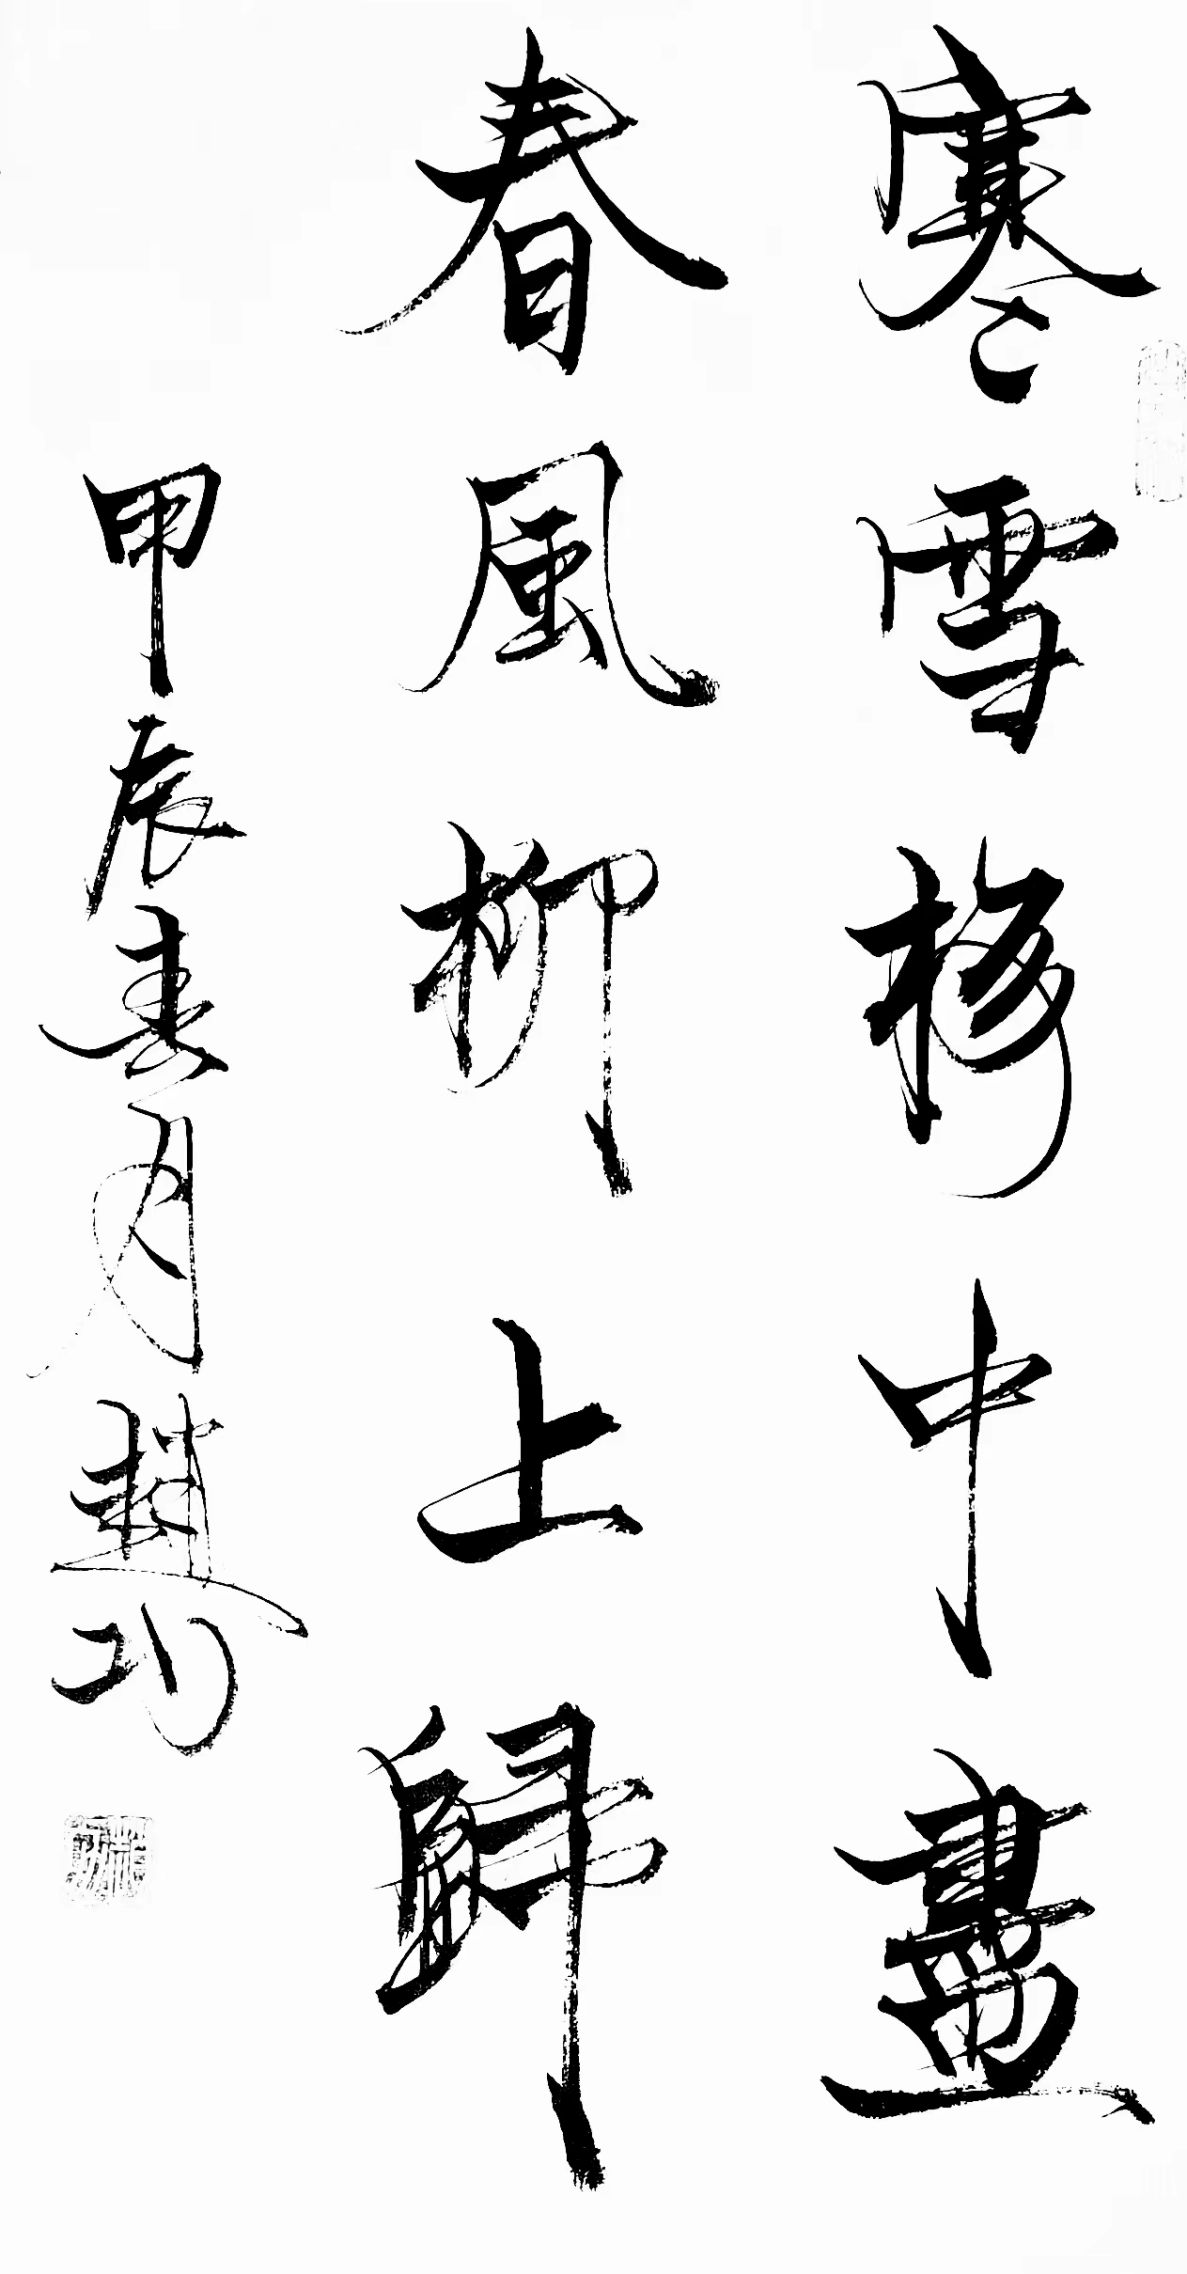 寒雪梅中畫
春風柳上歸
甲辰春月趙功